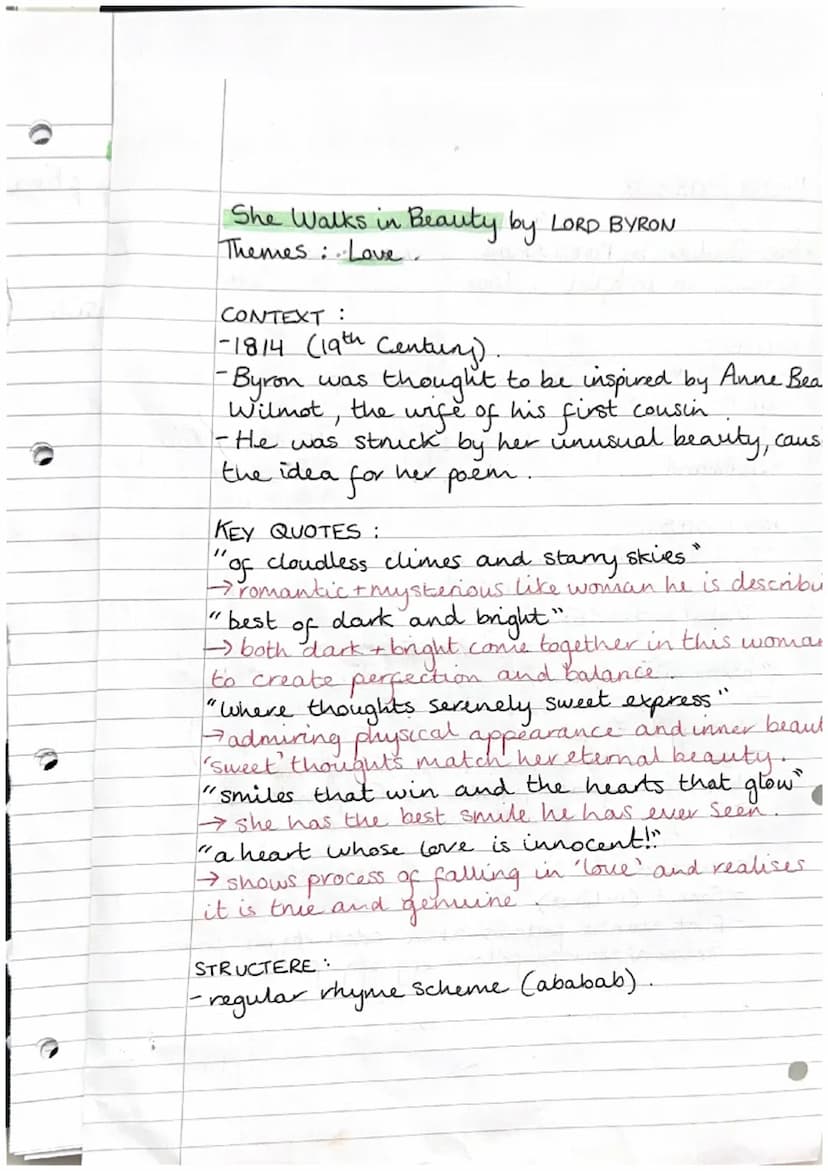 She Walks in Beauty by LORD BYRON
Themes : Love .
CONTEXT :
-1814 (19th Century).
-Byron was thought to be inspired by Anne Bea
Wilmot, the wife of his first cousin.
-He was struck by her unusual beauty, caus
the idea for her poem.
KEY QUOTES :
"of cloudless climes and starry skies"
→romantic+mysterious like woman he is describi
"best of dark and bright"
→both dark+bright come together in this woman
to create perfection and balance.
"where thoughts serenely sweet express"
→admiring physical appearance and inner beaut
'sweet' thoughts match her eternal beauty.
"smiles that win and the hearts that glow"
→ she has the best smile he has ever seen.
"a heart whose love is innocent!"
→ shows process of falling in 'love' and realises
it is true and genuine.
STRUCTERE :
-regular rhyme scheme (ababab).